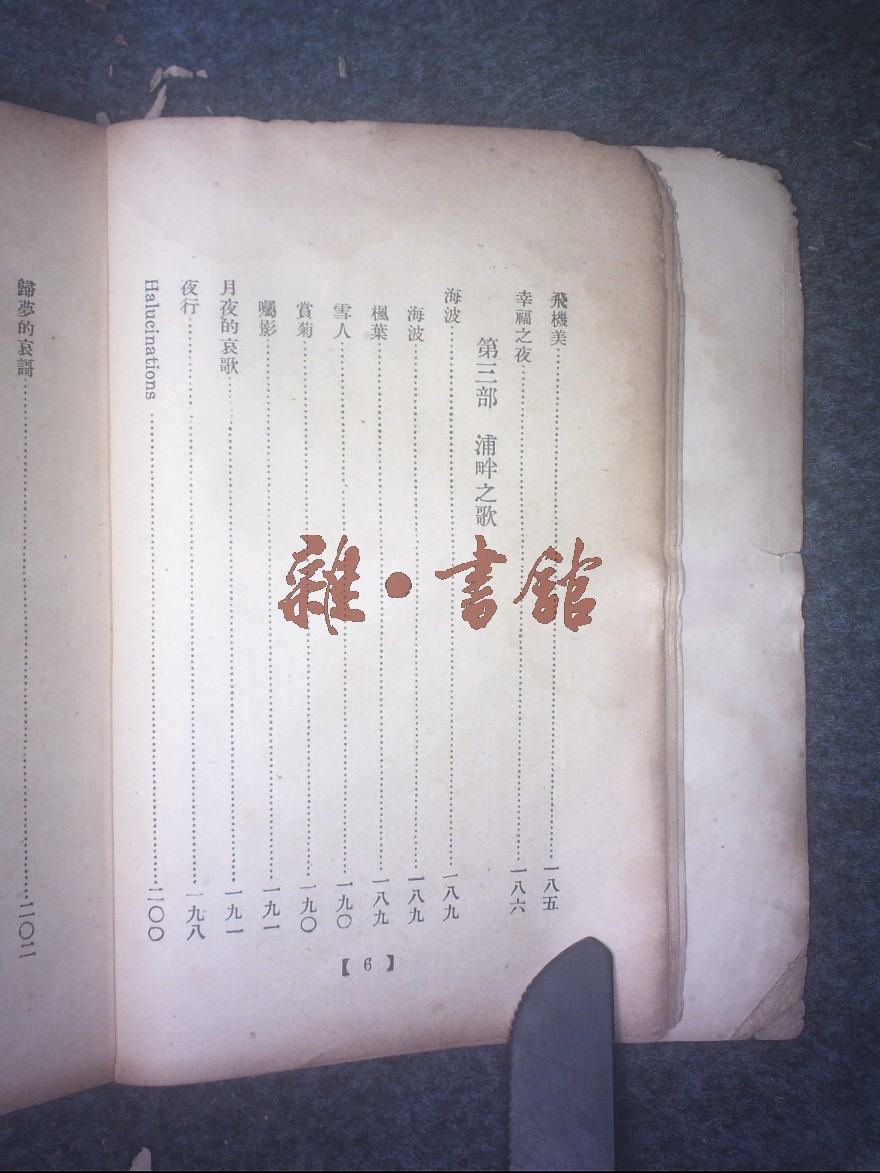 飛機美……一八五
幸福之夜……一八六
第三部　浦畔之歌
海波……一八九
海波……一八九
楓葉……一八九
雪人……一九〇
賞菊……一九〇
囑影……一九一
月夜的哀歌……一九一
夜行……一九八
Halucinations……二〇〇
【6】
歸夢的哀謌……二〇二
雜•書館